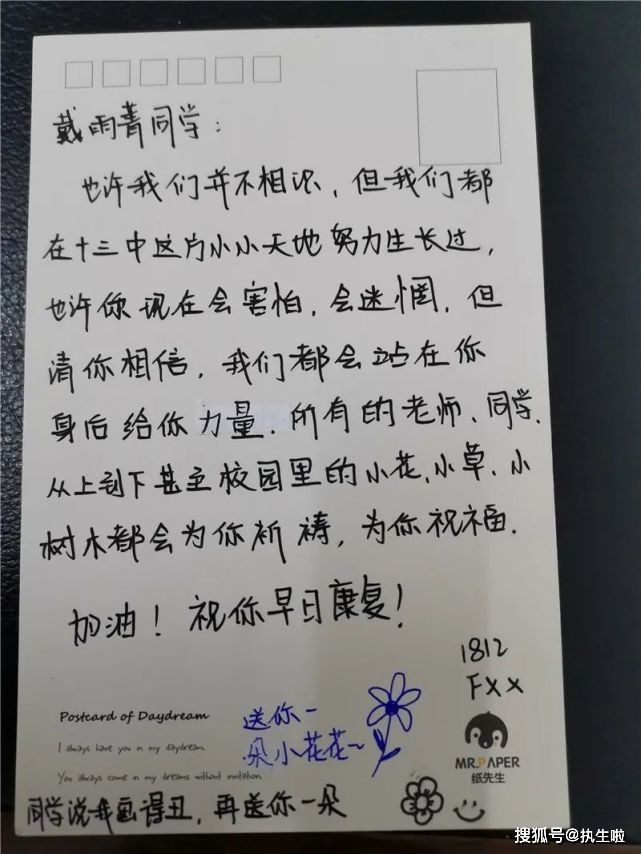 戴雨菁同学：
也许我们并不相识，但我们都
在十三中这片小小天地努力生长过，
也许你现在会害怕，会迷惘，但
请你相信，我们都会站在你
身后给你力量．所有的老师、同学．
从上到下甚至校园里的小花、小草、小
树木都会为你祈祷，为你祝福．
加油！祝你早日康复！
1812
FXX
送你一
朵小花花~
Postcard of Daydream
I always have you in my daydream.
You always come in my dreams without invitation.
MR.PAPER
纸先生
同学说我画得丑，再送你一朵
搜狐号@执生啦